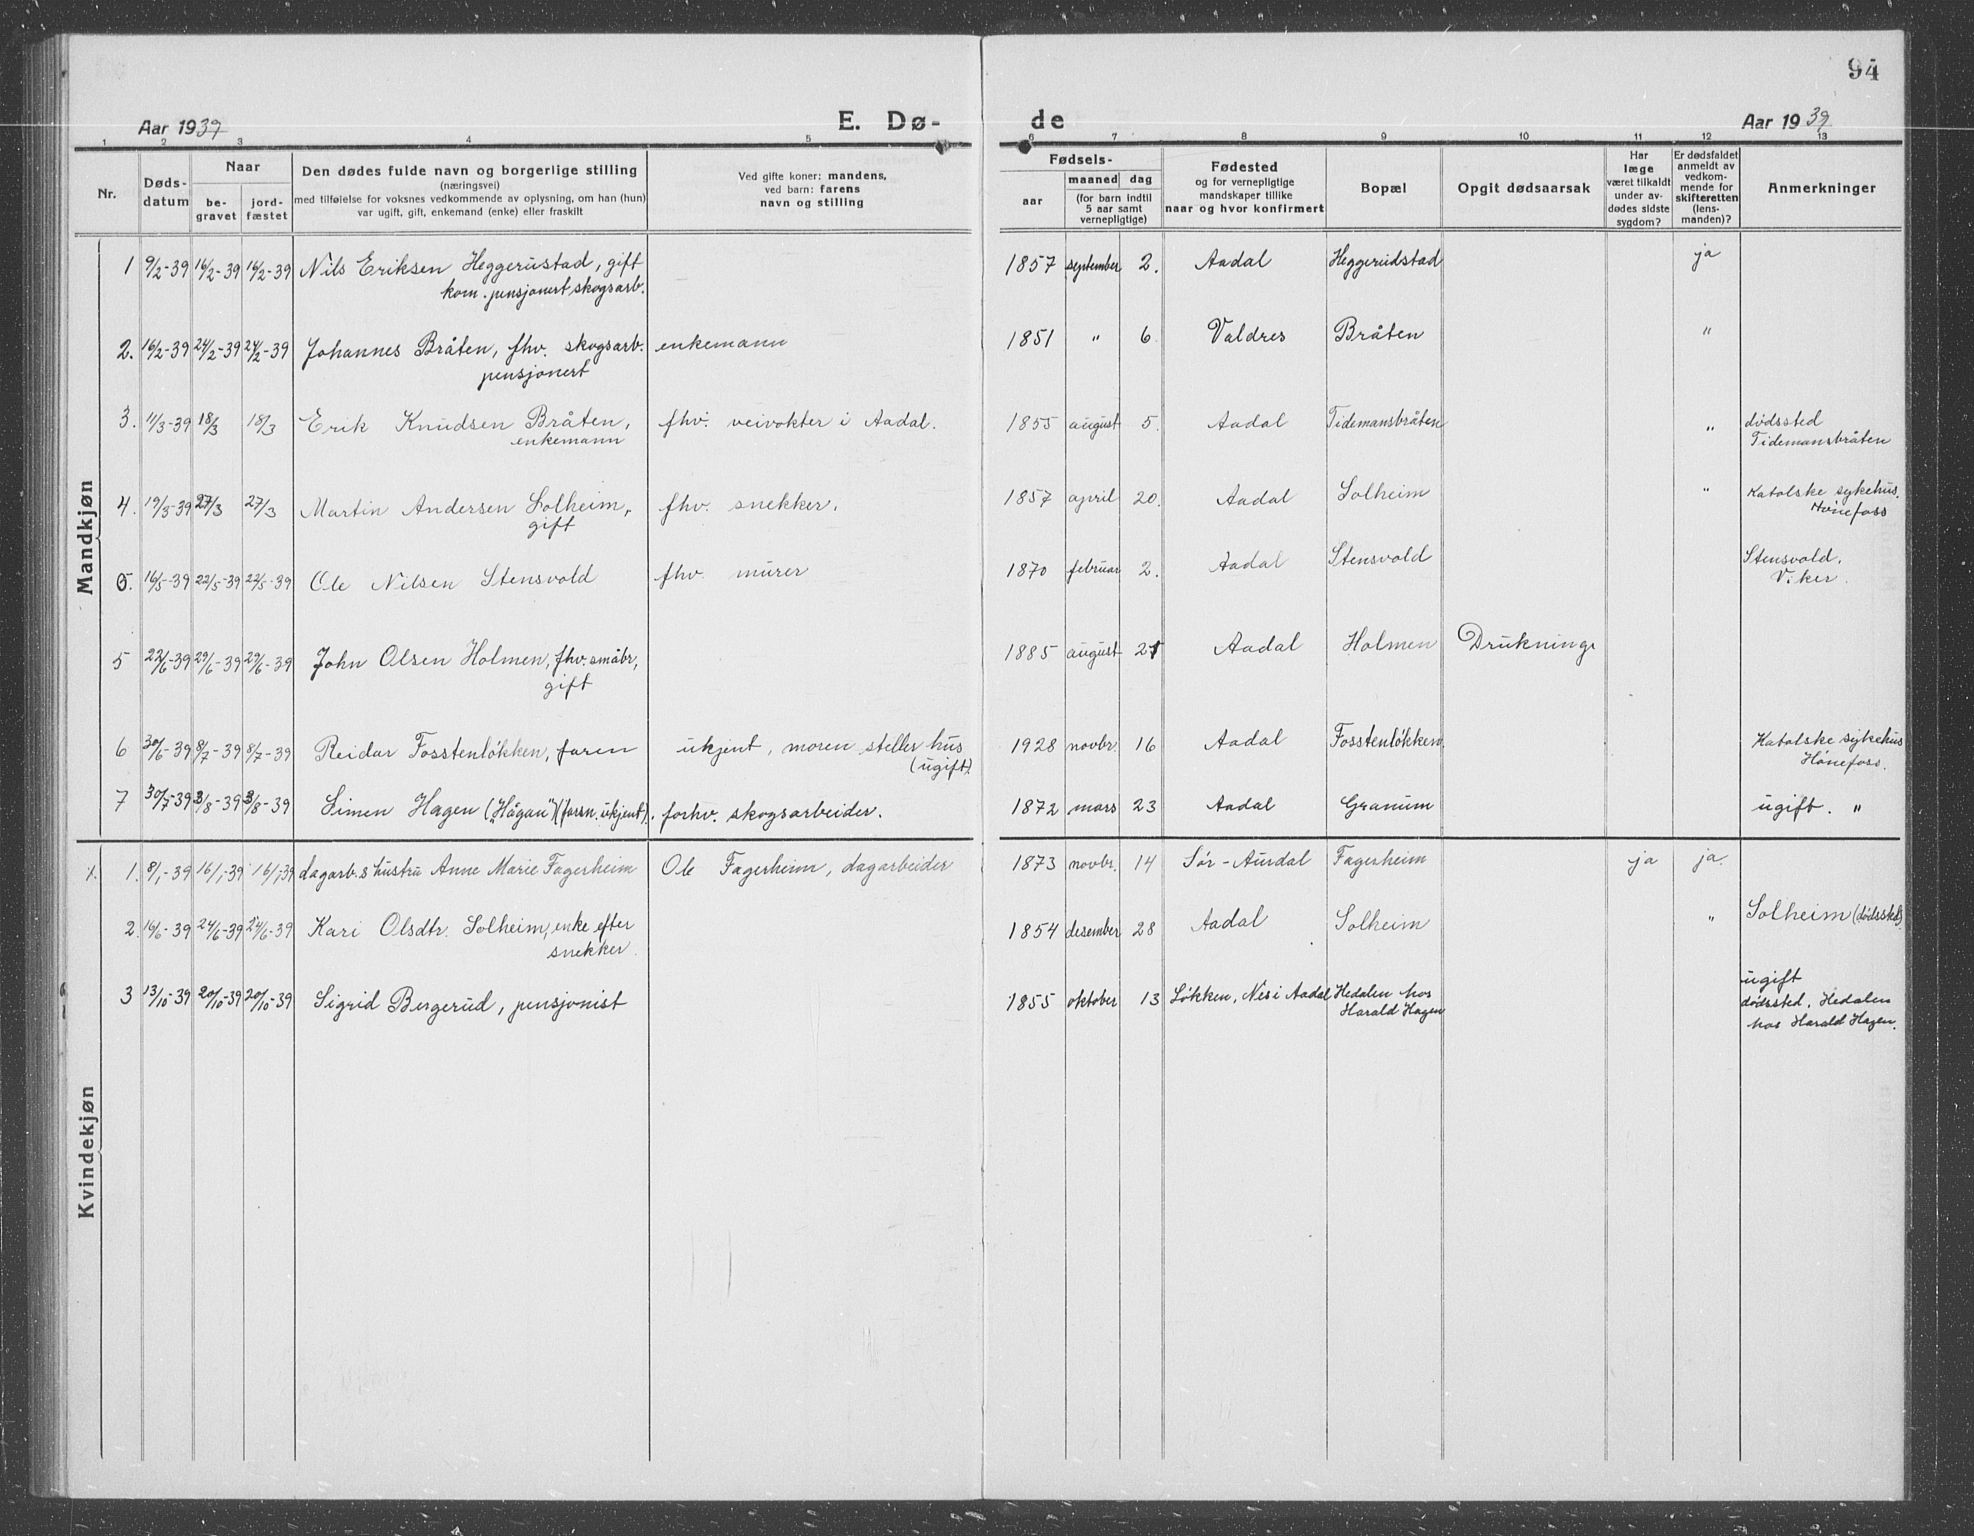 94
Aar 1939 E. Dø- de Aar 1939
1 2 3 4 5 6 7 8 9 10 11 12 13
Nr.
Døds-
datum
Naar
be-
gravet
jord-
fæstet
Den dødes fulde navn og borgerlige stilling
(næringsvei)
med tilføielse for voksnes vedkommende av oplysning, om han (hun)
var ugift, gift, enkemand (enke) eller fraskilt
Ved gifte koner: mandens,
ved barn: farens
navn og stilling
Fødsels-
aar
maaned dag
(for barn indtil
5 aar samt
vernepligtige)
Fødested
og for vernepligtige
mandskaper tillike
naar og hvor konfirmert
Bopæl
Opgit dødsaarsak
Har
læge
været tilkaldt
under av-
dødes sidste
sygdom?
Er dødsfaldet
anmeldt av
vedkom-
mende for
skifteretten
(lens-
manden)?
Anmerkninger
Mandkjøn
1 9/2-39 16/2-39 16/2-39 Nils Eriksen Heggerustad, gift 1857 september 2. Aadal Heggerudstad ja
kom. pensjonert skogsarb.
2. 16/2-39 24/2-39 24/2-39 Johannes Bråten, fhv. skogsarb. enkemann 1851 " 6 Valdres Bråten "
pensjonert
3. 11/3-39 18/3 18/3 Erik Knudsen Bråten, fhv. veivokter i Aadal. 1855 august 5. Aadal Tidemansbråten " dødssted
enkemann Tidemansbråten
4. 19/3-39 27/3 27/3 Martin Andersen Solheim, fhv. snekker. 1857 april 20. Aadal Solheim " Katolske sykehus.
gift Hønefoss
5. 16/5-39 22/5-39 22/5-39 Ole Nilsen Stensvold fhv. murer 1870 februar 2. Aadal Stensvold Stensvold.
Viker.
5 22/6-39 29/6-39 29/6-39 John Olsen Holmen, fhv. småbr, 1885 august 21 Aadal Holmen Druknings
gift
6 30/6-39 8/7-39 8/7-39 Reidar Fosstenløkken, faren ukjent, moren steller hus 1928 novbr. 16 Aadal Fosstenløkken. Katolske sykehus
(ugift) Hønefoss.
7 30/7-39 3/8-39 3/8-39 Simen Hagen ("Hågan") (farsn. ukjent). forhv. skogsarbeider. 1872 mars 23 Aadal Granum ugift. "
Kvindekjøn
1. 8/1-39 16/1-39 16/1-39 dagarb.s hustru Anne Marie Fagerheim Ole Fagerheim, dagarbeider 1873 novbr. 14 Sør-Aurdal Fagerheim ja ja.
2. 16/6-39 24/6-39 24/6-39 Kari Olsdtr. Solheim, enke efter 1854 desember 28 Aadal Solheim " Solheim (dødssted)
snekker.
3 13/10-39 20/10-39 20/10-39 Sigrid Bergerud, pensjonist 1855 oktober 13 Løkken, Nes i Aadal Hedalen hos ugift
Harald Hagen dødssted, Hedalen
hos Harald Hagen.